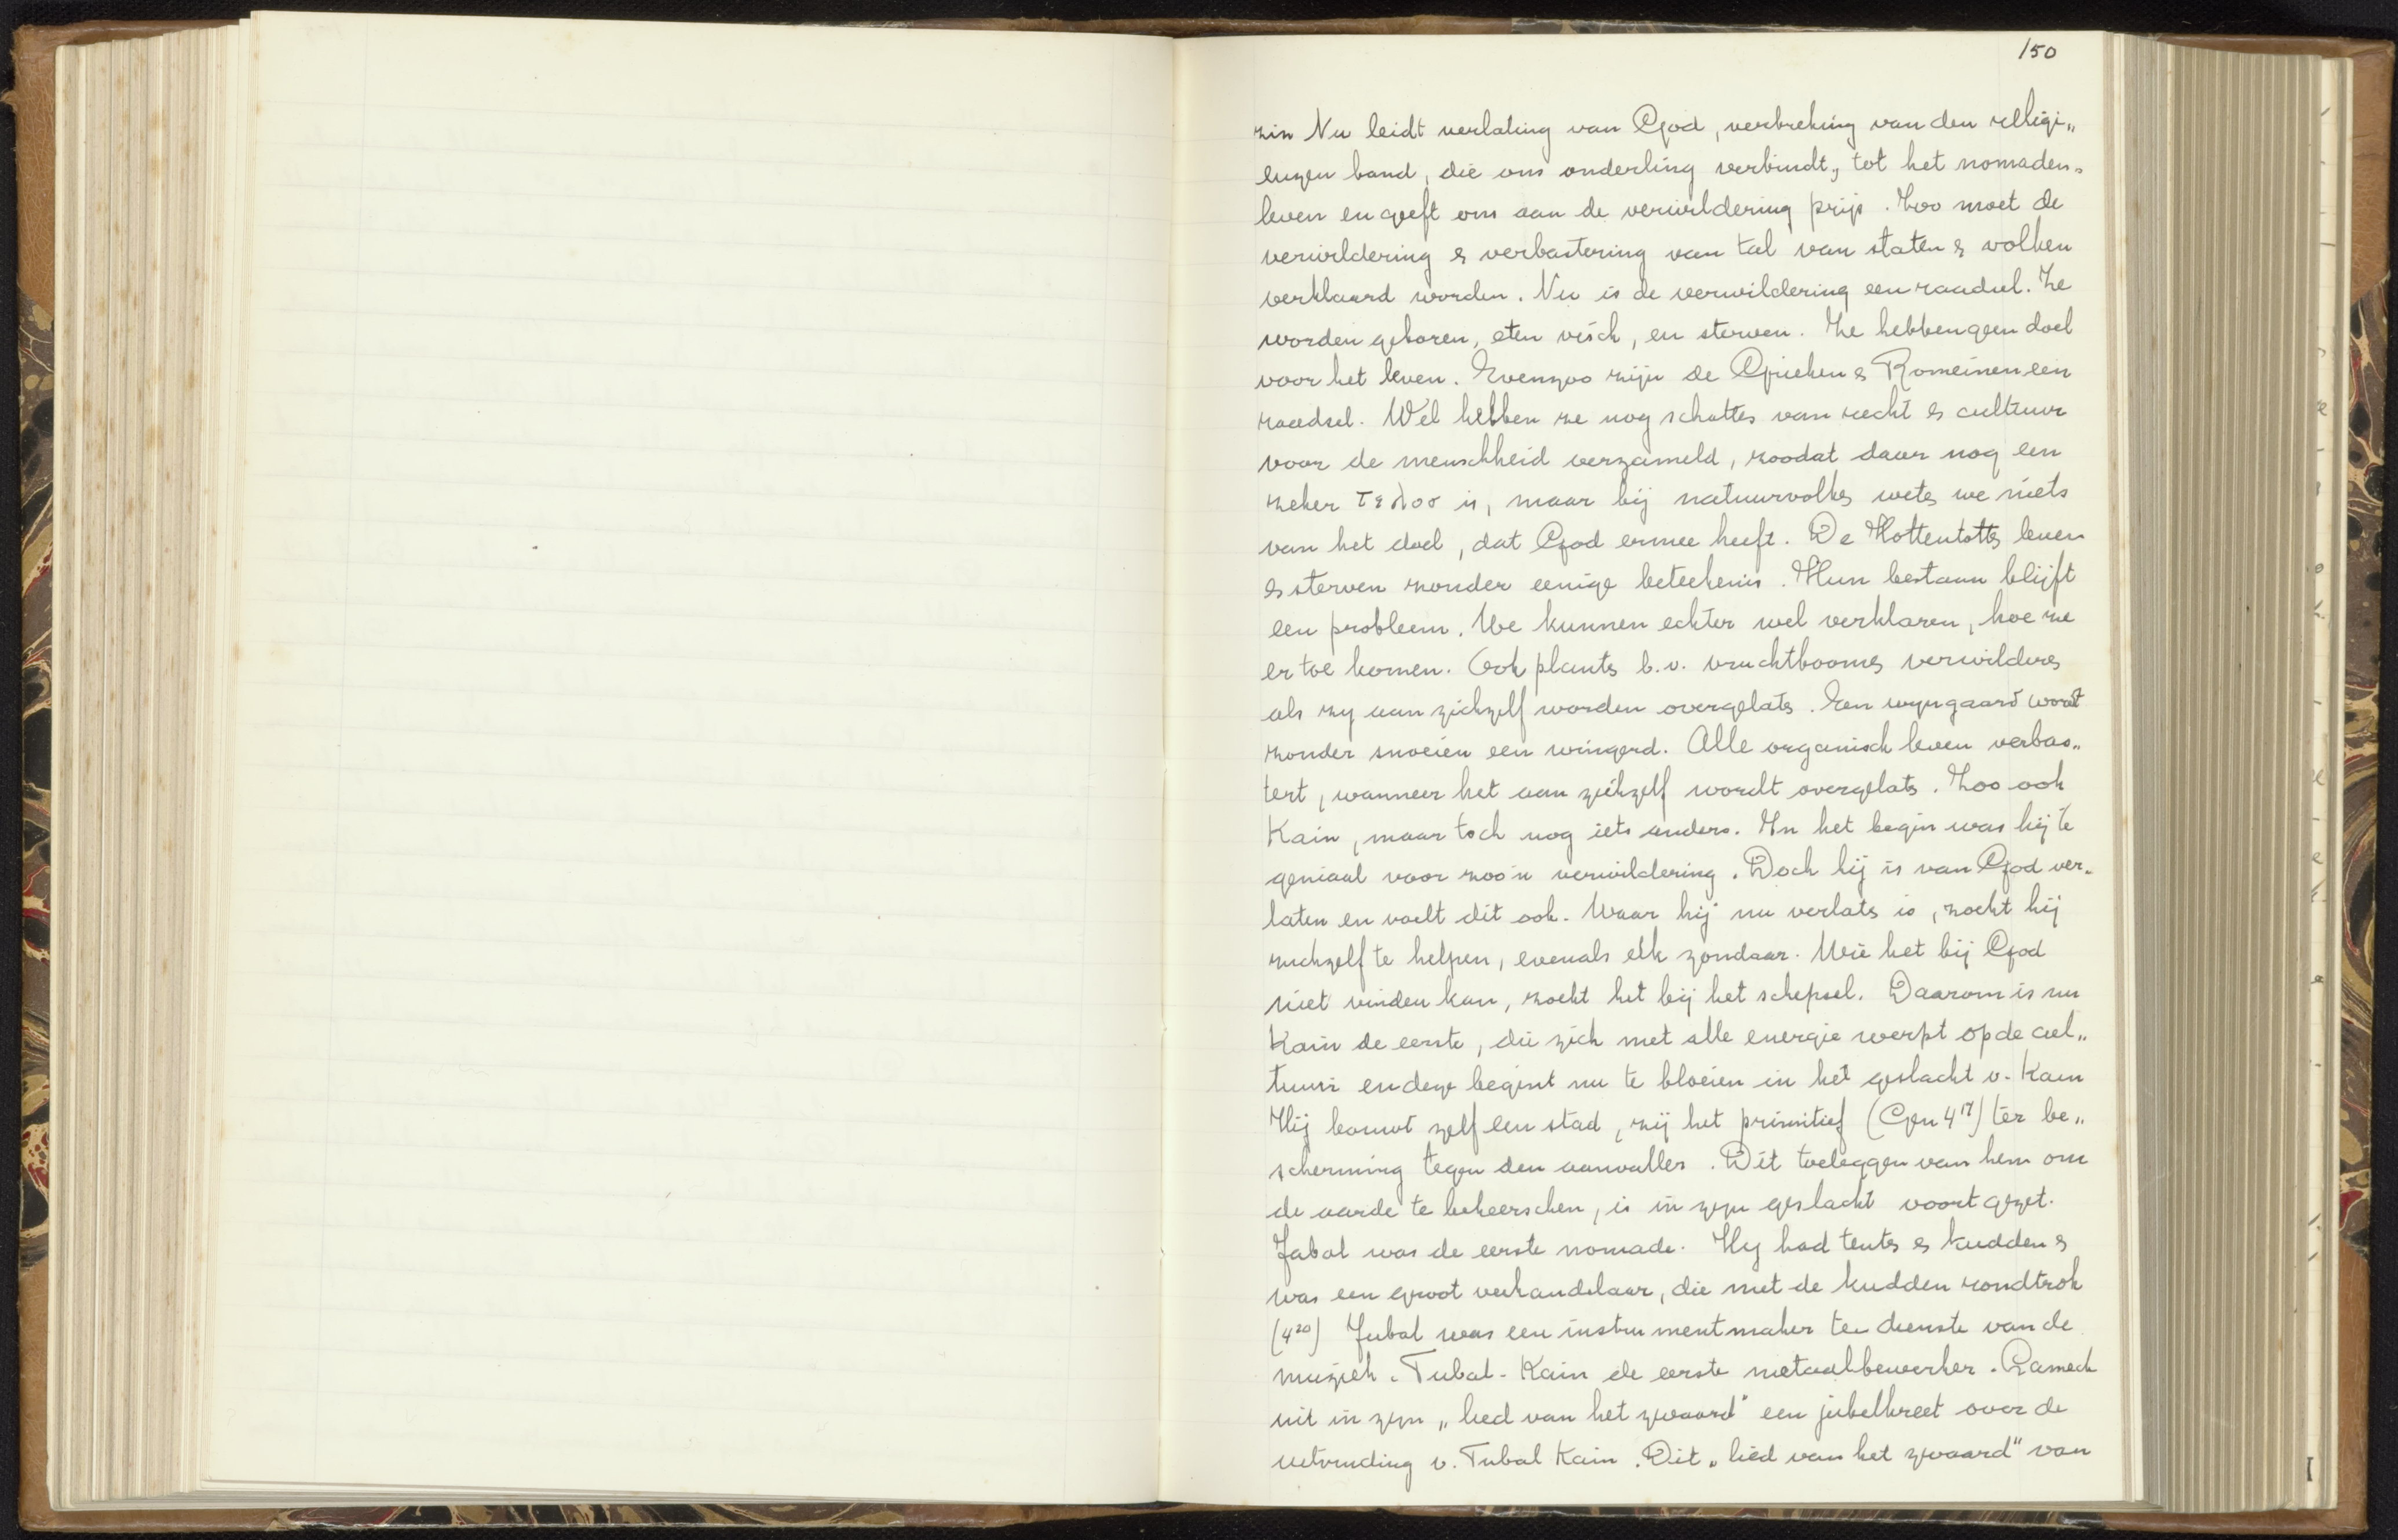 150
zin Nu leidt verlating van God, verbreking van den religi„
euzen band, die ons onderling verbindt, tot het nomaden„
leven en geeft ons aan de verwildering prijs. Zoo moet de
verwildering & verbastering van tal van staten & volken
verklaard worden. Nu is de verwildering een raadsel. Ze
worden geboren, eten visch, en sterven. Ze hebben geen doel
voor het leven. Evenzoo zijn de Grieken & Romeinen een
raadsel. Wel hebben ze nog schatten van recht & cultuur
voor de menschheid verzameld, zoodat daar nog een
zeker τελος is, maar bij natuurvolken weten we niets
van het doel, dat God ermee heeft. De Hottentotten leven
& sterven zonder eenige beteekenis. Hun bestaan blijft
een probleem. We kunnen echter wel verklaren, hoe ze
er toe komen. Ook planten b.v. vruchtboomen verwilderen
als zy aan zichzelf worden overgelaten. Een wyngaard wordt
zonder snoeien een wingerd. Alle organisch leven verbas„
tert, wanneer het aan zichzelf wordt overgelaten. Zoo ook
Kain, maar toch nog iets anders. In het begin was hij te
geniaal voor zoo'n verwildering. Doch hij is van God ver„
laten en voelt dit ook. Waar hij nu verlaten is, zoekt hij
zichzelf te helpen, evenals elk zondaar. Wie het bij God
niet vinden kan, zoekt het bij het schepsel. Daarom is nu
Kain de eerste, die zich met alle energie werpt op de cul„
tuur en deze begint nu te bloeien in het geslacht v. Kain
Hij bouwt zelf een stad, zij het primitief (Gen 4¹⁷) ter be„
scherming tegen den aanvaller. Dit toeleggen van hem om
de aarde te beheerschen, is in zyn geslacht voortgezet.
Jabal was de eerste nomade. Hy had tenten & kudden &
was een groot veehandelaar, die met de kudden rondtrok
(4²⁰) Jubal was een instrumentmaker ten dienste van de
muziek. Tubal-Kain de eerste metaalbewerker. Lamech
uit in zyn „lied van het zwaard" een jubelkreet over de
uitvinding v. Tubal Kain. Dit „lied van het zwaard" van